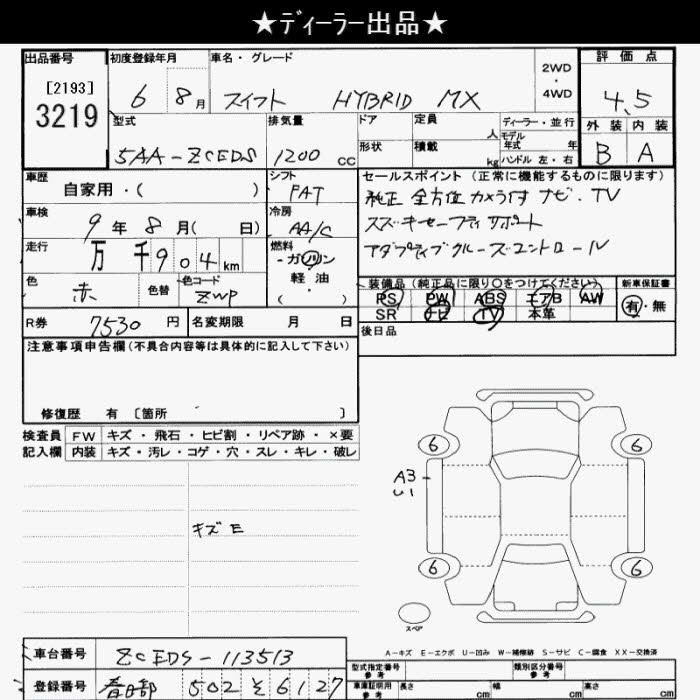 ★ディーラー出品★
出品番号 初度登録年月 車名・グレード 2WD・4WD 評価点
[2193]
3219
6 8月 スイフト HYBRID MX 4.5
型式 排気量 ドア 定員 人 ディーラー・並行 外装 内装
モデル年式 年
5AA-ZCEDS 1200 CC 形状 積載 kg ハンドル 左・右 B A
車歴 シフト セールスポイント(正常に機能するものに限ります)
自家用・( ) FAT 純正 全方位カメラ付 ナビ・TV
車検 冷房 スズキセーフティサポート
9年 8月( 日) AA/C アダプティブクルーズコントロール
走行 燃料
万 千 904 km ガソリン
軽・油
( )
色 色替 色コード 装備品(純正品に限り○をつけてください) 新車保証書
赤 ZWP PS PW ABS エアB AW 有・無
SR ナビ TV 本革
R券 7530 円 名変期限 月 日 後日品
注意事項申告欄(不具合内容等は具体的に記入して下さい)
修復歴 有 〔箇所 〕
検査員 FW キズ・飛石・ヒビ割・リペア跡・×要
記入欄 内装 キズ・汚レ・コゲ・穴・スレ・キレ・破レ
6 6
A3
U1
キズE
6 6
スペア
A-キズ E-エクボ U-凹み W-補修跡 S-サビ C-腐食 XX-交換済
車台番号 ZCEDS-113513
型式指定番号 参考 類別区分番号 参考
登録番号 春日部 502 そ 6127
車庫証明用 参考 長さ cm 幅 cm 高さ cm